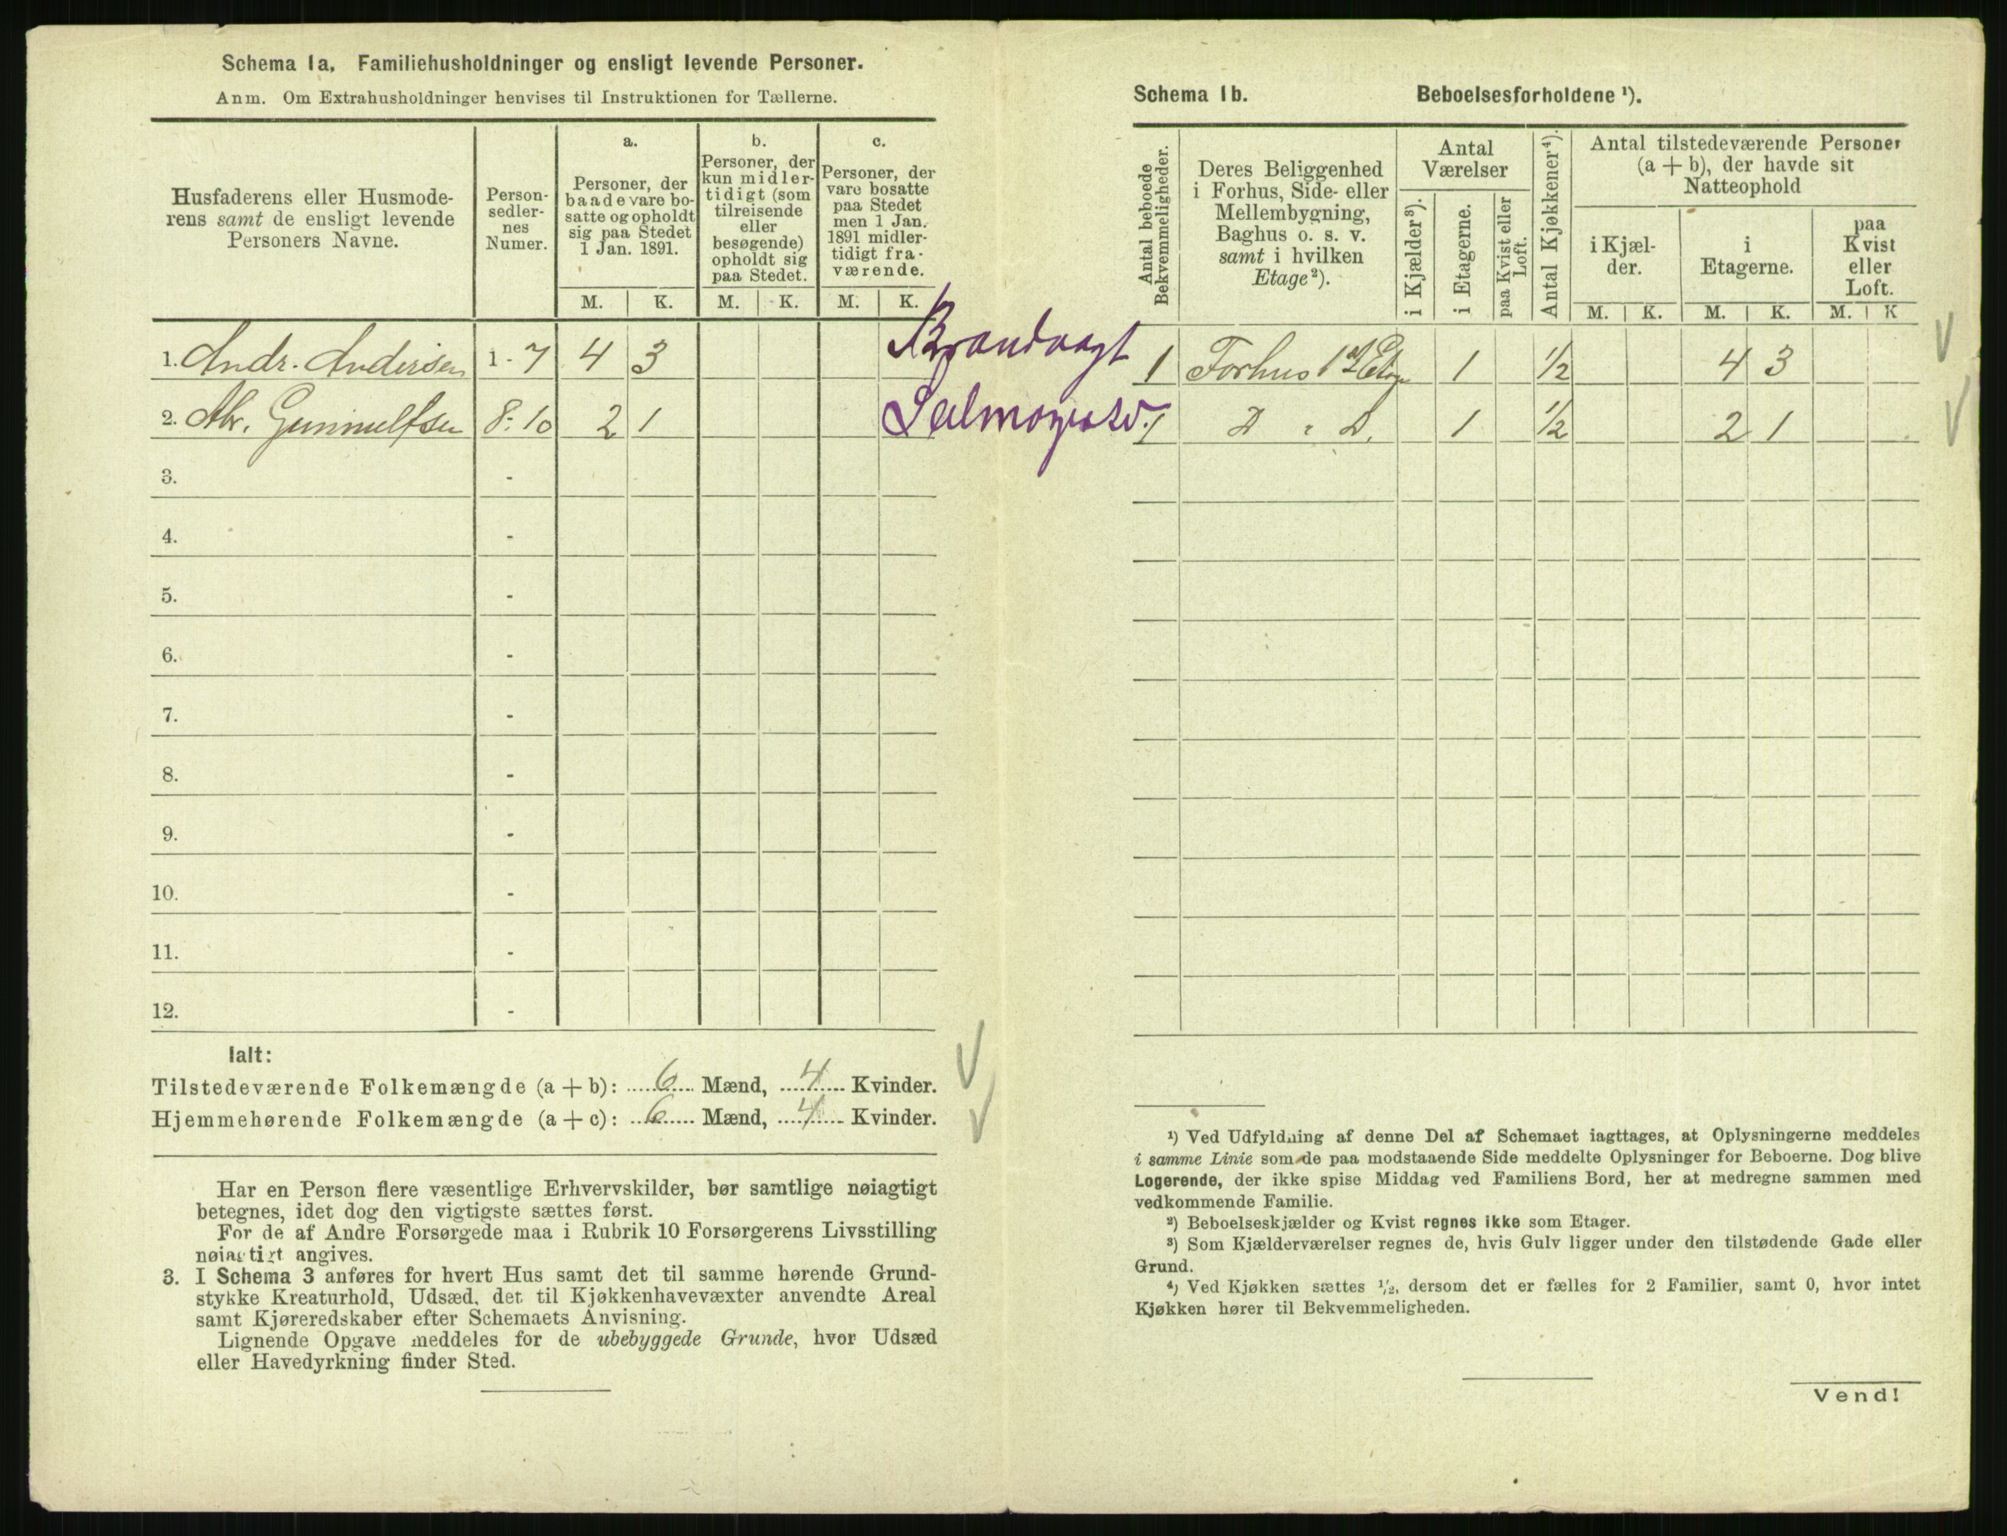 Schema 1a. Familiehusholdninger og ensligt levende Personer.
Anm. Om Extrahusholdninger henvises til Instruktionen for Tællerne.
Husfaderens eller Husmode-
rens samt de ensligt levende
Personers Navne.
Person-
sedler-
nes
Numer.
a.
Personer, der
baade vare bo-
satte og opholdt
sig paa Stedet
1 Jan. 1891.
b.
Personer, der
kun midler-
tidigt (som
tilreisende
eller
besøgende)
opholdt sig
paa Stedet.
c.
Personer, der
vare bosatte
paa Stedet
men 1 Jan.
1891 midler-
tidigt fra-
værende.
M. K. M. K. M. K.
1. Andr. Andersen 1-7 4 3 Brandvagt
2. Abr. Gunnulfsen 8-10 2 1
3. -
4. -
5. -
6. -
7. -
8. -
9. -
10. -
11. -
12. -
Ialt:
Tilstedeværende Folkemængde (a + b): 6 Mænd, 4 Kvinder.
Hjemmehørende Folkemængde (a + c): 6 Mænd, 4 Kvinder.
Har en Person flere væsentlige Erhvervskilder, bør samtlige nøiagtigt
betegnes, idet dog den vigtigste sættes først.
For de af Andre Forsørgede maa i Rubrik 10 Forsørgerens Livsstilling
nøiagtigt angives.
3. I Schema 3 anføres for hvert Hus samt det til samme hørende Grund-
stykke Kreaturhold, Udsæd, det til Kjøkkenhavevæxter anvendte Areal
samt Kjøreredskaber efter Schemaets Anvisning.
Lignende Opgave meddeles for de ubebyggede Grunde, hvor Udsæd
eller Havedyrkning finder Sted.
Schema 1b. Beboelsesforholdene ¹).
Antal beboede
Bekvemmeligheder.
Deres Beliggenhed
i Forhus, Side- eller
Mellembygning,
Baghus o. s. v.
samt i hvilken
Etage²).
Antal
Værelser
i Kjælder³).
i Etagerne.
paa Kvist eller
Loft.
Antal Kjøkkener⁴).
Antal tilstedeværende Personer
(a + b), der havde sit
Natteophold
i Kjæl-
der.
i
Etagerne.
paa
Kvist
eller
Loft.
M. K. M. K. M. K
1 Forhus 1st Etage 1 1/2 4 3
1 D " D. 1 1/2 2 1
¹) Ved Udfyldning af denne Del af Schemaet iagttages, at Oplysningerne meddeles
i samme Linie som de paa modstaaende Side meddelte Oplysninger for Beboerne. Dog blive
Logerende, der ikke spise Middag ved Familiens Bord, her at medregne sammen med
vedkommende Familie.
²) Beboelseskjælder og Kvist regnes ikke som Etager.
³) Som Kjælderværelser regnes de, hvis Gulv ligger under den tilstødende Gade eller
Grund.
⁴) Ved Kjøkken sættes 1/2, dersom det er fælles for 2 Familier, samt 0, hvor intet
Kjøkken hører til Bekvemmeligheden.
Vend!